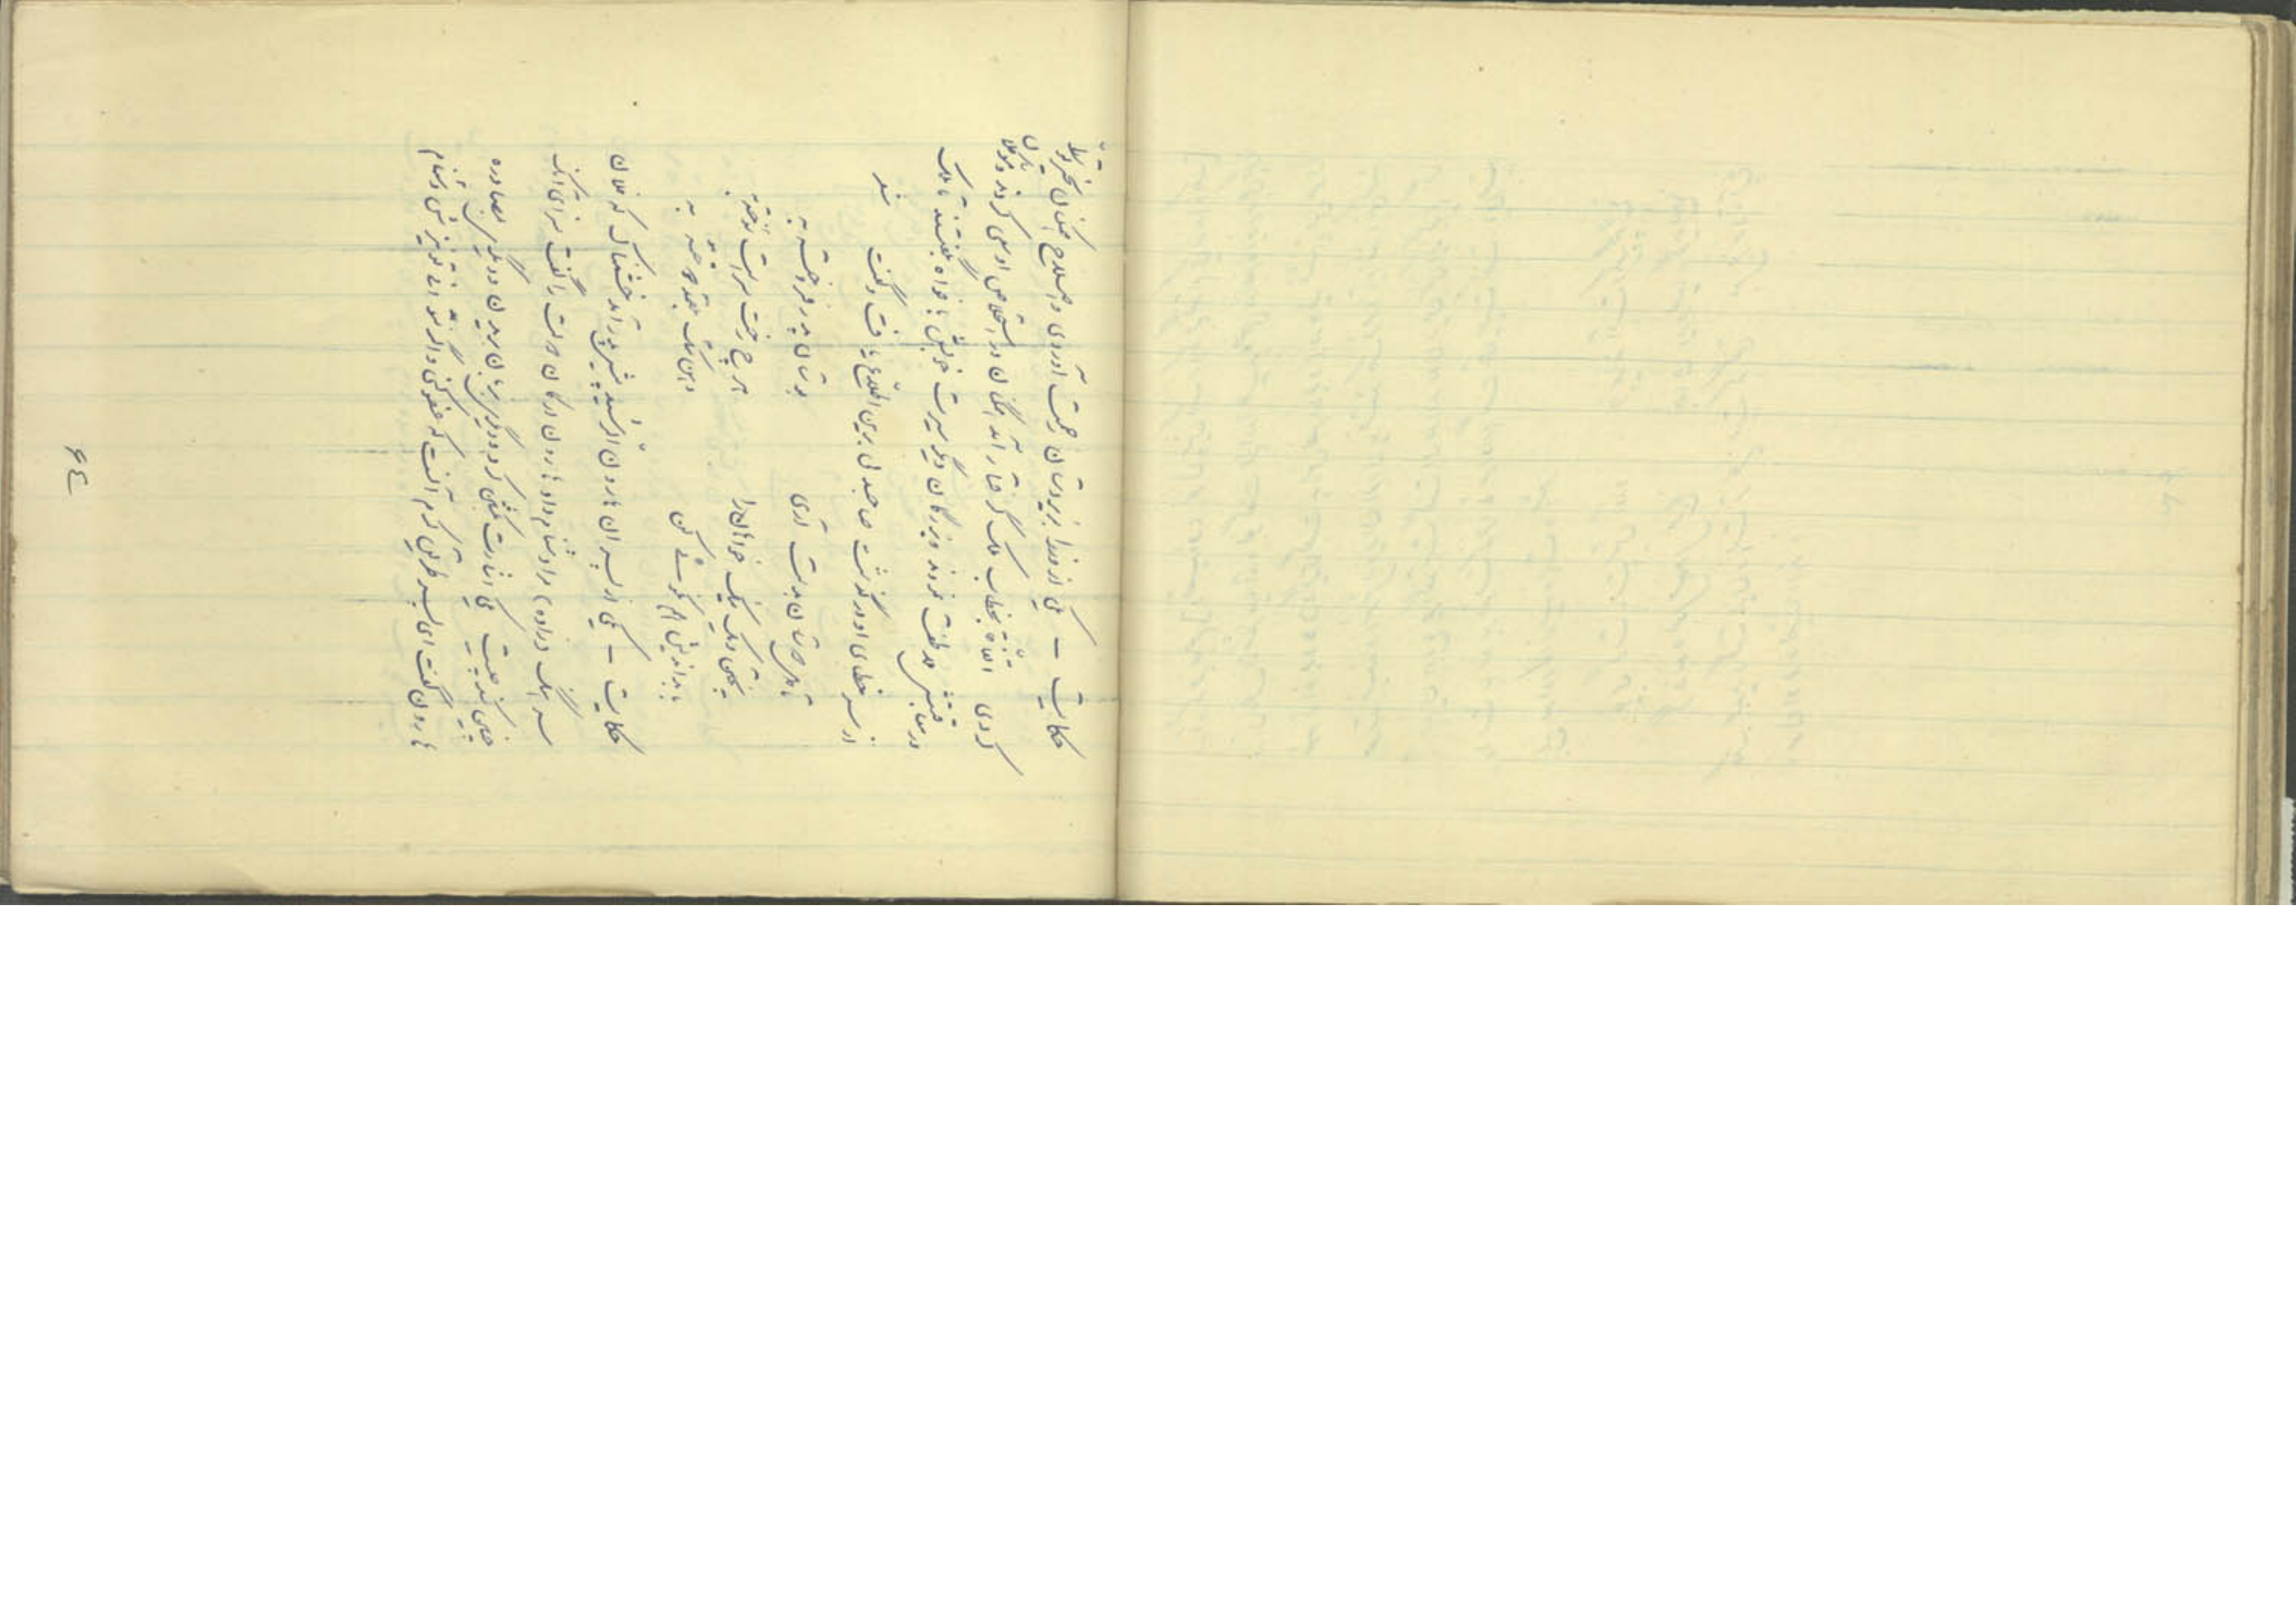 حکایت – یکی از وزرا بزیردستان رحمت آوردی و اصلاح همکنان بخیر توسّط
کردی اتّفاقاً بخطاب ملک گرفتار آمد همگان در استخلاص او سعی کردند و موکلان
در معاقبتش ملاطفت نمودند و بزرگان دیگر سیرت خوبش بافواه بگفتند تا ملک
از سر خطای او در گذشت صاحبدلی برین اطلاع یافت و گفت شعر
تا دل دوستان بدست آری بوستان پدر فروخته به
پختن دیگ نیک خواهان را هر چه رخت سراست سوخته به
با بداندیش هم نکوئی کن دهن سگ بلقمه دوخته به
حکایت – یکی از پسران هارون الرشید پیش پدر آمد خشمناک که فلان
سرهنگ زاده مرا دشنام داد هارون ارکان دولت را گفت سزای آنکه
چنین کند چیست یکی اشارت بکشتن کرد و دیگری بزبان بریدن و دیگری بمصادره
هارون گفت ای پسر طریق کرم آنست که عفو کنی و اگر نتوانی تو نیزش دشنام
۶٤